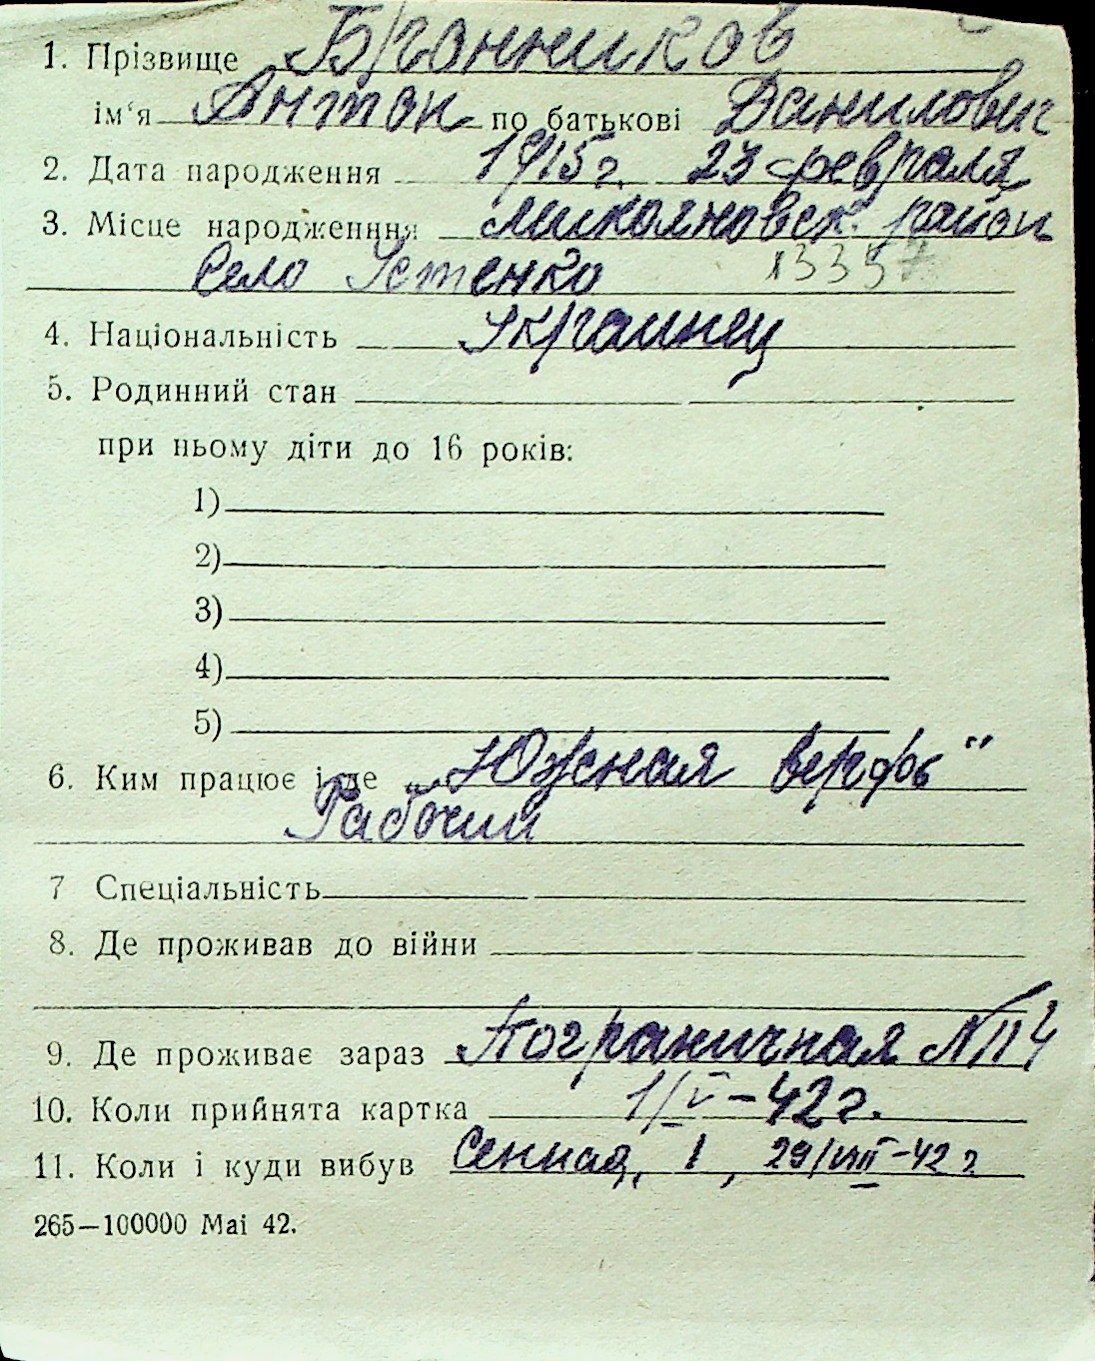 1. Прізвище Бранников
ім‘я Антон по батькові Данилович
2. Дата народження 1915 г. 23 февраля
3. Місце народженння район
Село Устенко
4. Національність Украинец
5. Родинний стан
при ньому діти до 16 років:
1)
2)
3)
4)
5)
6. Ким працює і де „Южная верфь“
Рабочий
7 Спеціальність
8. Де проживав до війни
9. Де проживає зараз Пограничная
10. Коли прийнята картка 1/V–42 г.
11. Коли і куди вибув Сенная, 1, 29/VIII–42 г.
265—100000 Mai 42.